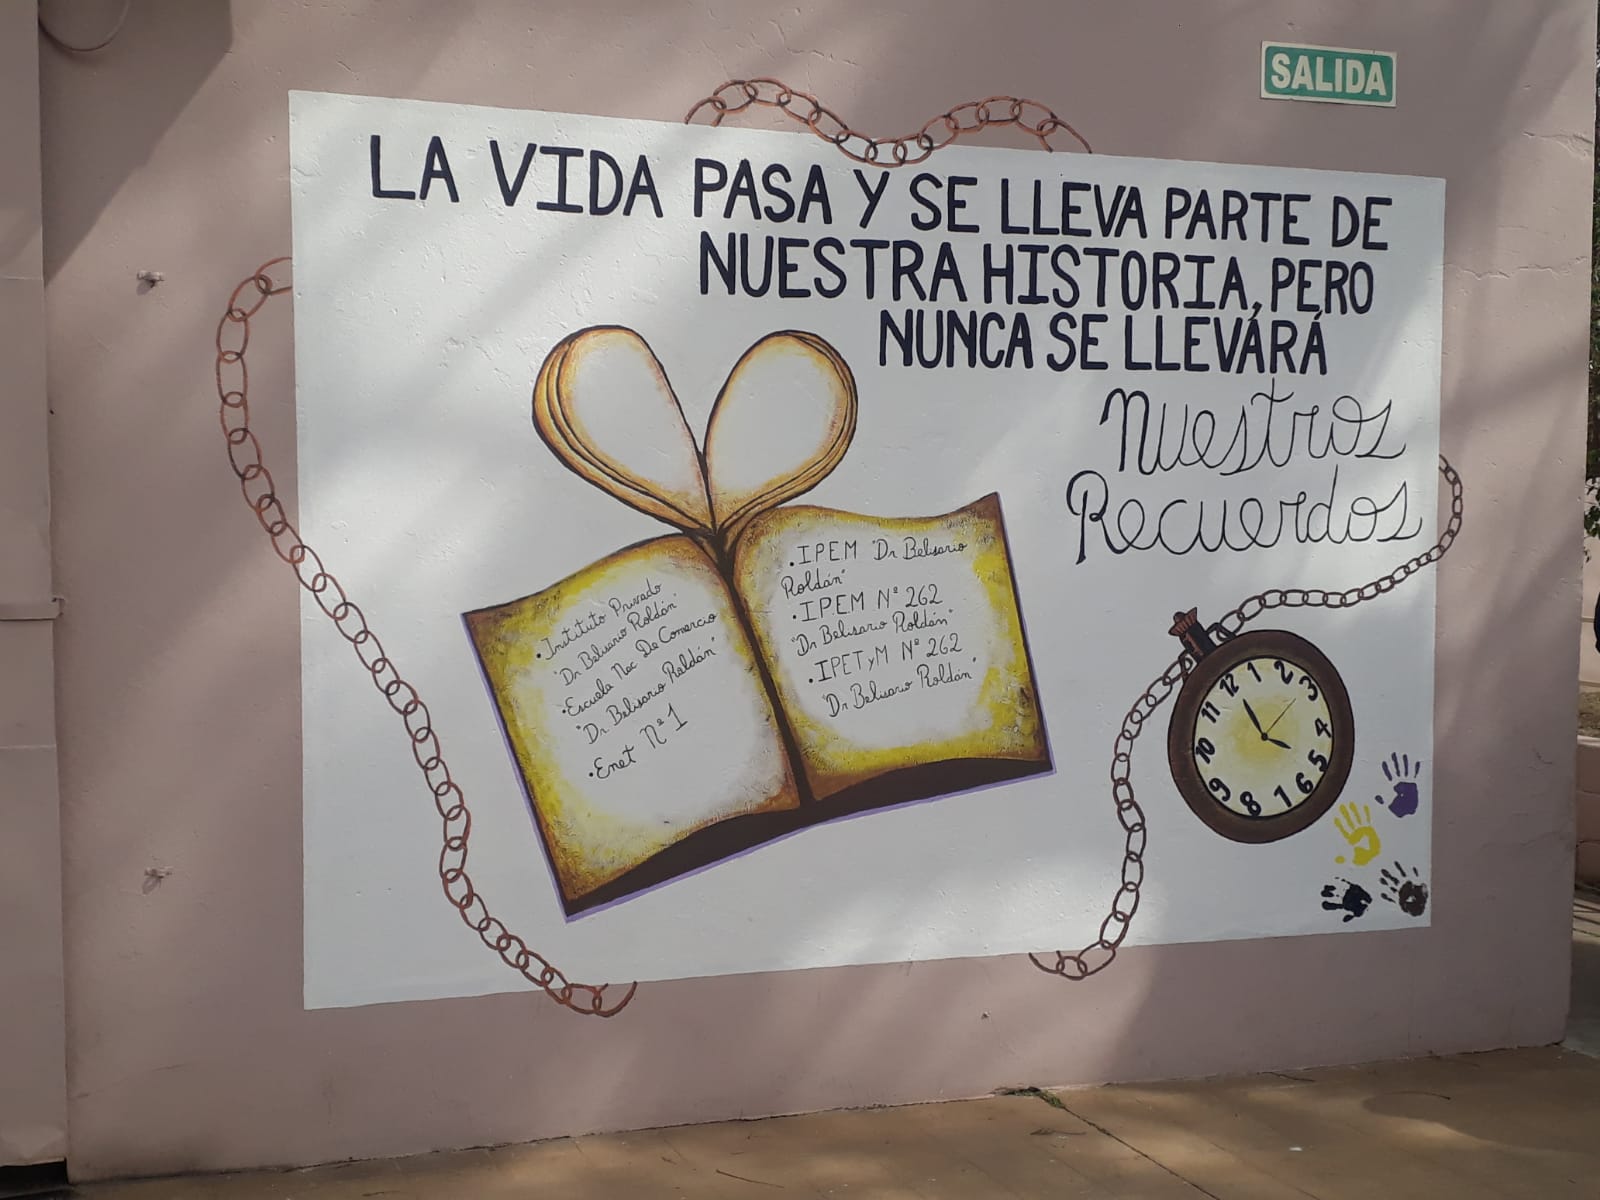 SALIDA
LA VIDA PASA Y SE LLEVA PARTE DE
NUESTRA HISTORIA, PERO
NUNCA SE LLEVARÁ
Nuestros
Recuerdos
• Instituto Privado
"Dr Belisario Roldán"
• Escuela Nac De Comercio
"Dr Belisario Roldán"
• Enet N° 1
• IPEM "Dr Belisario
Roldán"
• IPEM N° 262
"Dr Belisario Roldán"
• IPETyM N° 262
"Dr Belisario Roldán"
12
1
2
3
4
5
6
7
8
9
10
11